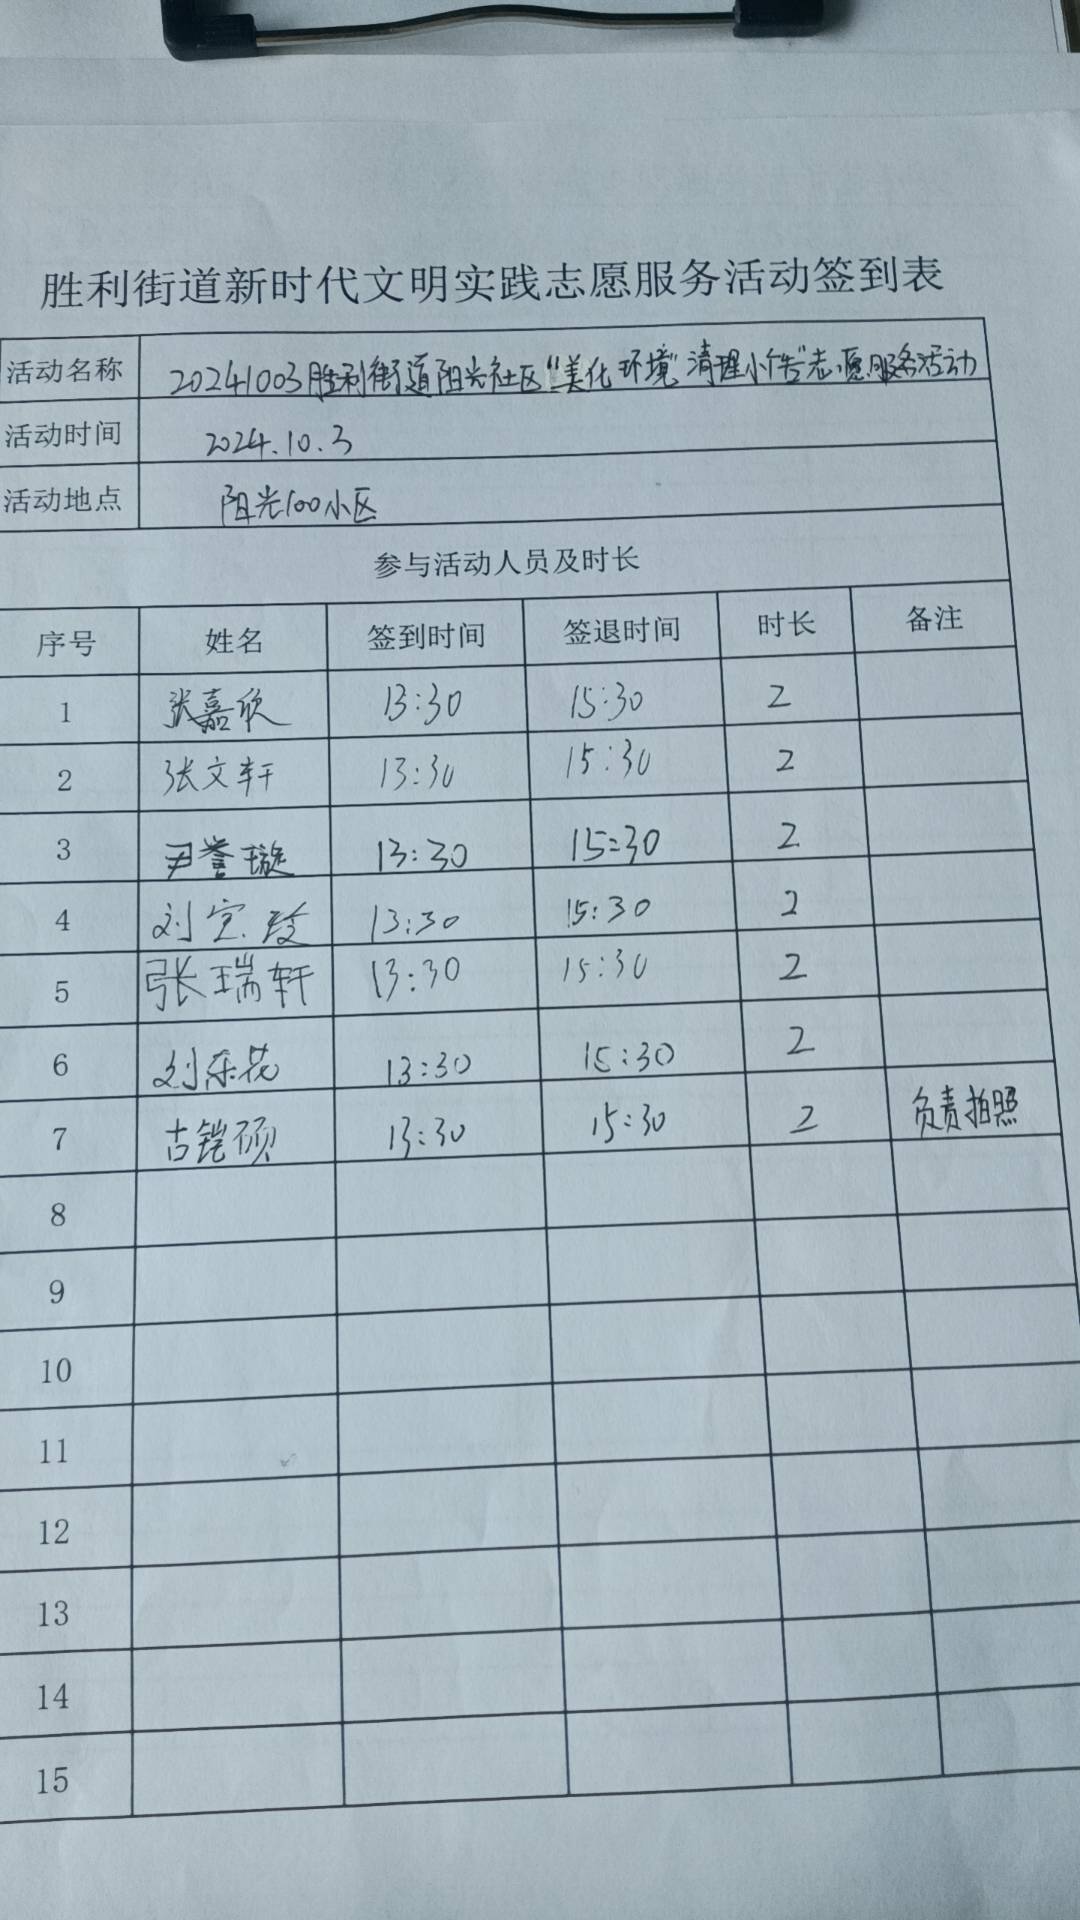 胜利街道新时代文明实践志愿服务活动签到表
活动名称 20241003胜利街道阳光社区“美化环境”清理小广告”志愿服务活动
活动时间 2024.10.3
活动地点 阳光100小区
参与活动人员及时长
序号 姓名 签到时间 签退时间 时长 备注
1 张嘉欣 13:30 15:30 2
2 张文轩 13:30 15:30 2
3 尹誉璇 13:30 15:30 2
4 刘 13:30 15:30 2
5 张瑞轩 13:30 15:30 2
6 刘乐花 13:30 15:30 2
7 古铠硕 13:30 15:30 2 负责拍照
8
9
10
11
12
13
14
15